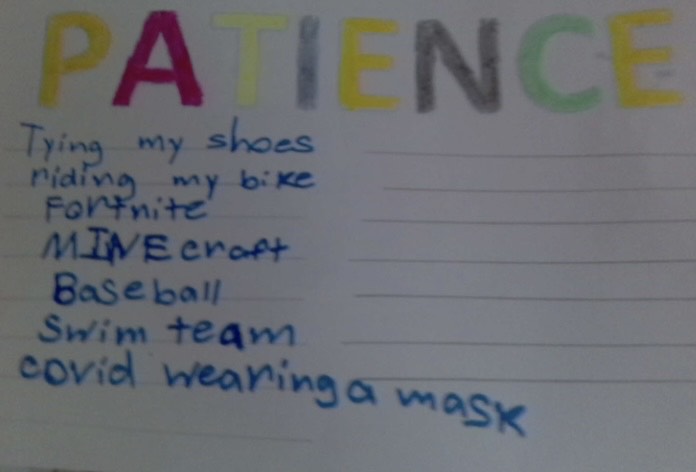 PATIENCE
Tying my shoes
riding my bike
Fortnite
MINEcraft
Baseball
Swim team
covid wearing a mask